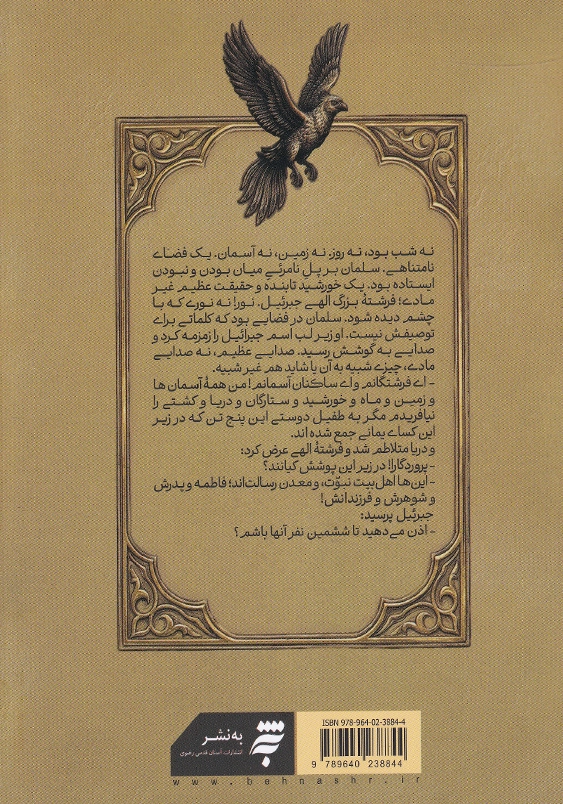 نه شب بود، نه روز. نه زمین، نه آسمان. یک فضای
نامتناهی. سلمان بر پلِ نامرئی میان بودن و نبودن
ایستاده بود. یک خورشید تابنده و حقیقت عظیم غیر
مادی؛ فرشتهٔ بزرگ الهی جبرئیل. نور! نه نوری که با
چشم دیده شود. سلمان در فضایی بود که کلماتی برای
توصیفش نیست. او زیر لب اسم جبرائیل را زمزمه کرد و
صدایی به گوشش رسید. صدایی عظیم، نه صدایی
مادی، چیزی شبیه به آن یا شاید هم غیر شبیه.
- ای فرشتگانم و ای ساکنان آسمانم! من همهٔ آسمان ها
و زمین و ماه و خورشید و ستارگان و دریا و کشتی را
نیافریدم مگر به طفیل دوستی این پنج تن که در زیر
این کسای یمانی جمع شده اند.
و دریا متلاطم شد و فرشتهٔ الهی عرض کرد:
- پروردگارا! در زیر این پوشش کیانند؟
- این‌ها اهل بیت نبوّت، و معدن رسالت‌اند؛ فاطمه و پدرش
و شوهرش و فرزندانش!
جبرئیل پرسید:
- اذن می‌دهید تا ششمین نفر آنها باشم؟
به‌نشر
انتشارات آستان قدس رضوی
ISBN 978-964-02-3884-4
9 789640 238844
www.behnashr.ir